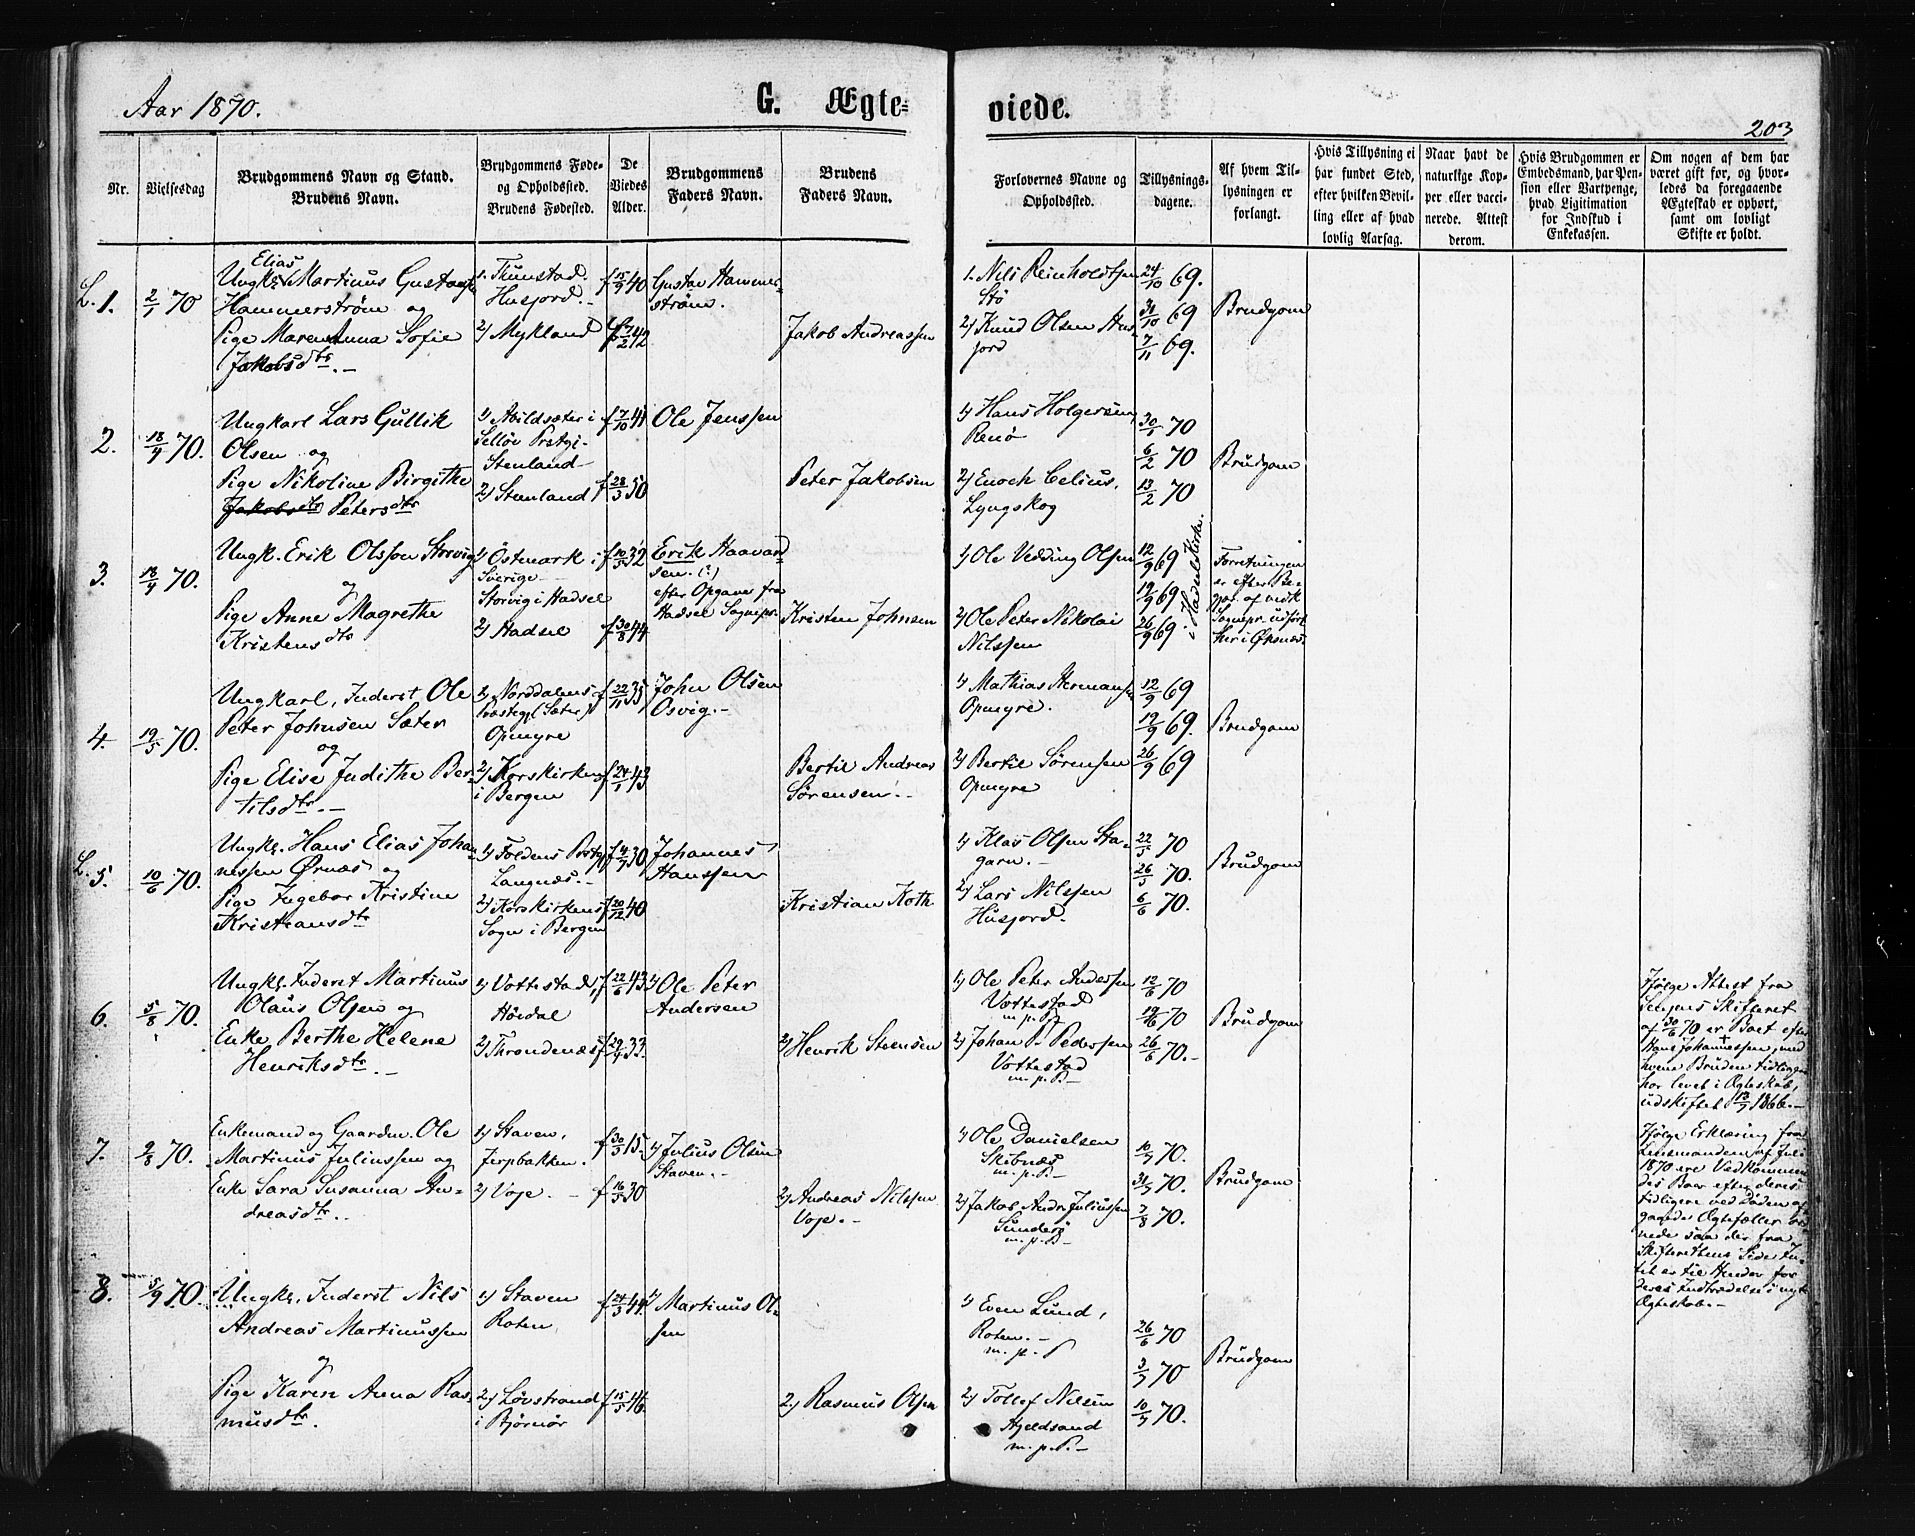 Aar 1870.
G. Ægte=
viede.
203
Nr.
Vielsesdag
Brudgommens Navn og Stand.
Brudens Navn.
Brudgommens Føde-
og Opholdssted.
Brudens Fødested.
De
Viedes
Alder.
Brudgommens
Faders Navn.
Brudens
Faders Navn.
Forlovernes Navne og
Opholdssted.
Tillysnings-
dagene.
Af hvem Til-
lysningen er
forlangt.
Hvis Tillysning ei
har fundet Sted,
efter hvilken Bevil-
ling eller af hvad
lovlig Aarsag.
Naar havt de
naturlige Kop-
per eller vacci-
nerede. Attest
derom.
Hvis Brudgommen er
Embedsmand, har Pen-
sion eller Vartpenge,
hvad Ligitimation
for Indskud i
Enkekassen.
Om nogen af dem har
været gift før, og hvor-
ledes da foregaaende
Ægteskab er ophørt,
samt om lovligt
Skifte er holdt.
L. 1.
2/1 70
Elias
Ungk. Martinus Gustavs
Hammerstrøm og
Pige Maren Anna Sofie
Jakobsdtr. -
1. Tunstad.
Husjord. -
2) Mykland
f 15/9 40
f 7/2 42
Gustav Hammer-
strøm.
Jakob Andreassen
1. Nils Reinholdtsen
Stø
2) Knud Olsen Hus
jord
24/10 69.
31/10 69
7/11 69.
Brudgom
2.
18/4 70.
Ungkarl Lars Gullik
Olsen og
Pige Nikoline Birgithe
Jakobsdtr Petersdtr
1) Abildsæter i
Stenland
2) Stenland
f 7/10 41
f 28/3 50
Ole Jenssen
Peter Jakobsen
1) Hans Holgersen,
Renø
2) Enoch Celius,
Lyngskog
30/1 70
6/2 70
13/2 70
Brudgom
3.
18/4 70.
Ungk. Erik Olsson Storvig
og
Pige Anne Magrethe
Kristensdtr
1) Östmark i
Sverige
Storvig i Hadsel
2) Hadsel
f 10/5 32
f 30/8 44
Erik Haavard
sen. (?)
efter Opgave fra
Hadsel Sognepr.
Kristen Johnsen
1) Ole Vedding Olsen
2) Ole Peter Nikolai
Nilssen
12/9 69
19/9 69
26/9 69.
i Hadsel Kirke.
Forretningen
er efter Be-
gjær. af vedk
Sognepr. udført
her i Øksnes.
4.
19/5 70.
Ungkarl, Inderst Ole
Peter Johnsen Sæter
og
Pige Elise Judithe Ber-
tilsdtr. -
1) Norddalens
Præstegj. (Sæter)
Opmyre
2) Korskirken
i Bergen
f 22/11 35
f 24/1 43
John Olsen
Osvig. -
Bertil Andreas
Sørensen. -
1) Mathias Hermansen
Opmyre.
2) Bertil Sørensen
Opmyre
12/9 69
19/9 69.
26/9 69
Brudgom
L. 5.
10/6 70.
Ungk. Hans Elias Johan-
nessen Ørnæs og
Pige Ingebor Kristine
Kristiansdtr
1) Foldens Præstegj
Langnæs. -
2) Korskirkens
Sogn i Bergen
f 4/5 30
f 20/12 40
Johannes
Hanssen
Kristian Koth.
1) Klas Olsen Sta-
garn. -
2) Lars Nilssen
Husjord. -
22/5 70
26/5 70.
6/6 70.
Brudgom
6.
5/8 70.
Ungk. Inderst Martinus
Olaus Olsen og
Enke Berthe Helene
Henriksdtr. -
1) Vottestad,
Høidal
2) Throndenæs
f 22/6 43
f 29/4 33.
1) Ole Peter
Andersen
2) Henrik Steensen
1) Ole Peter Andersen
Vottestad
m. p. P.
2) Johan P. Pedersen
Vottestad
m. p. P. -
12/6 70
19/6 70
26/6 70. -
Brudgom
Ifølge Attest fra
Senjens Skifteret
af 30/6 70 er Boet efter
Hans Johannessen, med
hvem Bruden tidligere
har levet i Ægteskab,
udskiftet 13/7 1866. -
7.
9/8 70.
Enkemand og Gaardm. Ole
Martinus Juliussen og
Enke Sara Susanna An-
dreasdtr. -
1) Staven,
Jerpbakken.
2) Voje. -
f 30/3 15.
f 16/3 30
1) Julius Olsen
Staven. -
2) Andreas Nilssen
Voje. -
1) Ole Danielsen
Skibnæs
m. p. P. -
2) Jakob Andr. Juliussen
Sunderø
m. p. P -
10/7 70.
31/7 70.
7/8 70.
Brudgom
Ifølge Erklæring fra
Lensmanden af Juli
1870 ere Vedkommen
des Boer efter deres
tidligere ved Døden af
gangne Ægtefæller ord
nede saa der fra
Skifterettens Side In-
tet er til Hinder for
deres Indtrædelse i nyt
Ægteskab. -
8.
5/9 70.
Ungk, Inderst Nils
Andreas Martinussen
og
Pige Karen Anna Ras-
musdtr.
1) Staven
Roten,
2) Løvstrand
i Bjørnør
f 24/3 44
f 15/5 46.
1) Martinus Ol-
sen
2) Rasmus Olsen
1) Even Lund,
Roten. -
m. p. P
2) Tollef Nilsen
Hjeldsand
m. p. P. -
26/6 70
3/7 70
10/7 70.
Brudgom